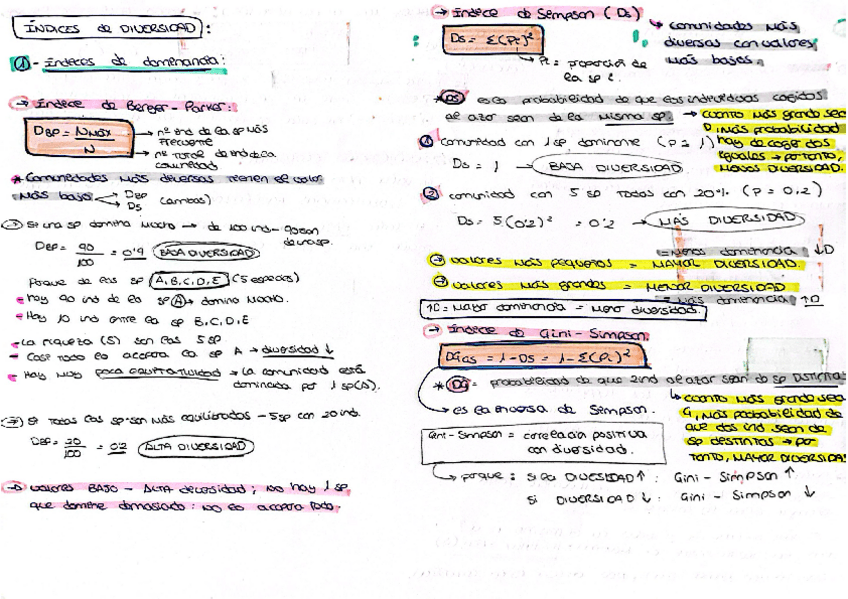 ÍNDICES de DIVERSIDAD:
① - Índices de dominancia:
→ Índice de Berger-Parker:
DBP = Nmáx / N
→ nº ind de la sp más frecuente
→ nº total de ind de la comunidad
* Comunidades más diversas tienen el valor
más bajo → DBP
→ DS (ambos)
→ Si una sp domina mucho → de 100 inds - 90 son
de una sp.
DBP = 90/100 = 0'9 (BAJA DIVERSIDAD)
Porque de las sp (A, B, C, D, E) (5 especies)
- Hay 90 ind de la sp (A) → domina mucho.
- Hay 10 ind entre la sp B, C, D, E
- La riqueza (S) son las 5 sp
- Casi todo lo acapara la sp A → diversidad ↓
- Hay muy poca equitatividad → La comunidad está
dominada por 1 sp (A).
→ Si todas las sp son más equilibradas - 5 sp con 20 ind.
DBP = 20/100 = 0'2 (ALTA DIVERSIDAD)
→ valores BAJO - ALTA decosidad; no hay 1 sp
que domine demasiado: no lo acapara todo.
→ Índice de Simpson (Ds)
Ds = Σ(Pi)²
↳ Pi = proporción de
la sp i.
↳ comunidades más
diversas con valores
más bajos.
* DS es la probabilidad de que los individuos cogidos
al azar sean de la misma sp. → cuanto más grande sea
D, más probabilidad
hay de coger dos
iguales → por tanto,
menos diversidad.
① Comunidad con 1 sp dominante (P = 1)
Ds = 1 → BAJA DIVERSIDAD
② comunidad con 5 sp todas con 20% (P = 0,2)
Ds = 5(0'2)² = 0'2 → MÁS DIVERSIDAD
= menos dominancia ↓D
→ valores más pequeños = MAYOR DIVERSIDAD.
→ valores más grandes = MENOR DIVERSIDAD
= más dominancia ↑D
↑D = Mayor dominancia = Menor diversidad.
→ Índice de Gini-Simpson.
DGiS = 1 - DS = 1 - Σ(Pi)²
* DG = probabilidad de que 2 ind al azar sean de sp DISTINTAS
→ es la inversa de Simpson.
↳ cuanto más grande sea
G, más probabilidad de
que dos ind sean de
sp destintas → por
tanto, MAYOR DIVERSIDAD.
Gini-Simpson = correlación positiva
con diversidad.
↳ porque: si la DIVERSIDAD ↑: Gini-Simpson ↑
si DIVERSIDAD ↓: Gini-Simpson ↓